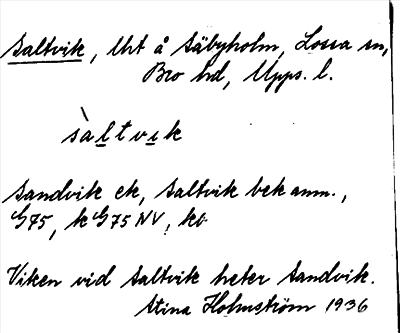 Saltvik, lht å Säbyholm, Lossa sn,
Bro hd, Upps. l.
sàltvik
Sandvik ek, Saltvik bek anm.,
G75, k G75 NV; kö
Viken vid Saltvik heter Sandvik.
Stina Holmström 1936